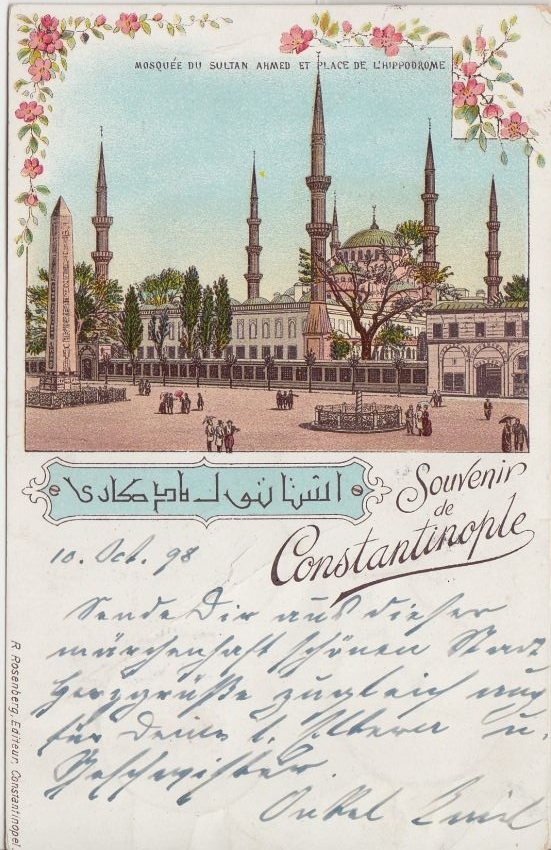 MOSQUÉE DU SULTAN AHMED ET PLACE DE L'HIPPODROME
Souvenir
de
Constantinople
10. Oct. 98
Sende Dir aus dieser
märchenhaft schönen Stadt
Herzgrüße zugleich auch
für Deine l. Eltern u.
Geschwister.
Onkel Emil
R. Rosenberg, Editeur, Constantinopel